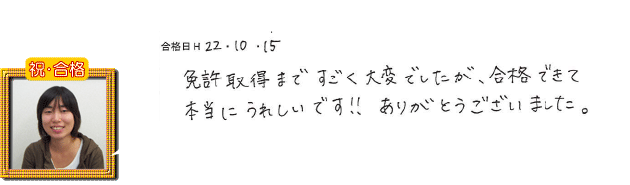 合格日H 22・10・15
祝・合格
免許取得まですごく大変でしたが、合格できて
本当にうれしいです!! ありがとうございました。